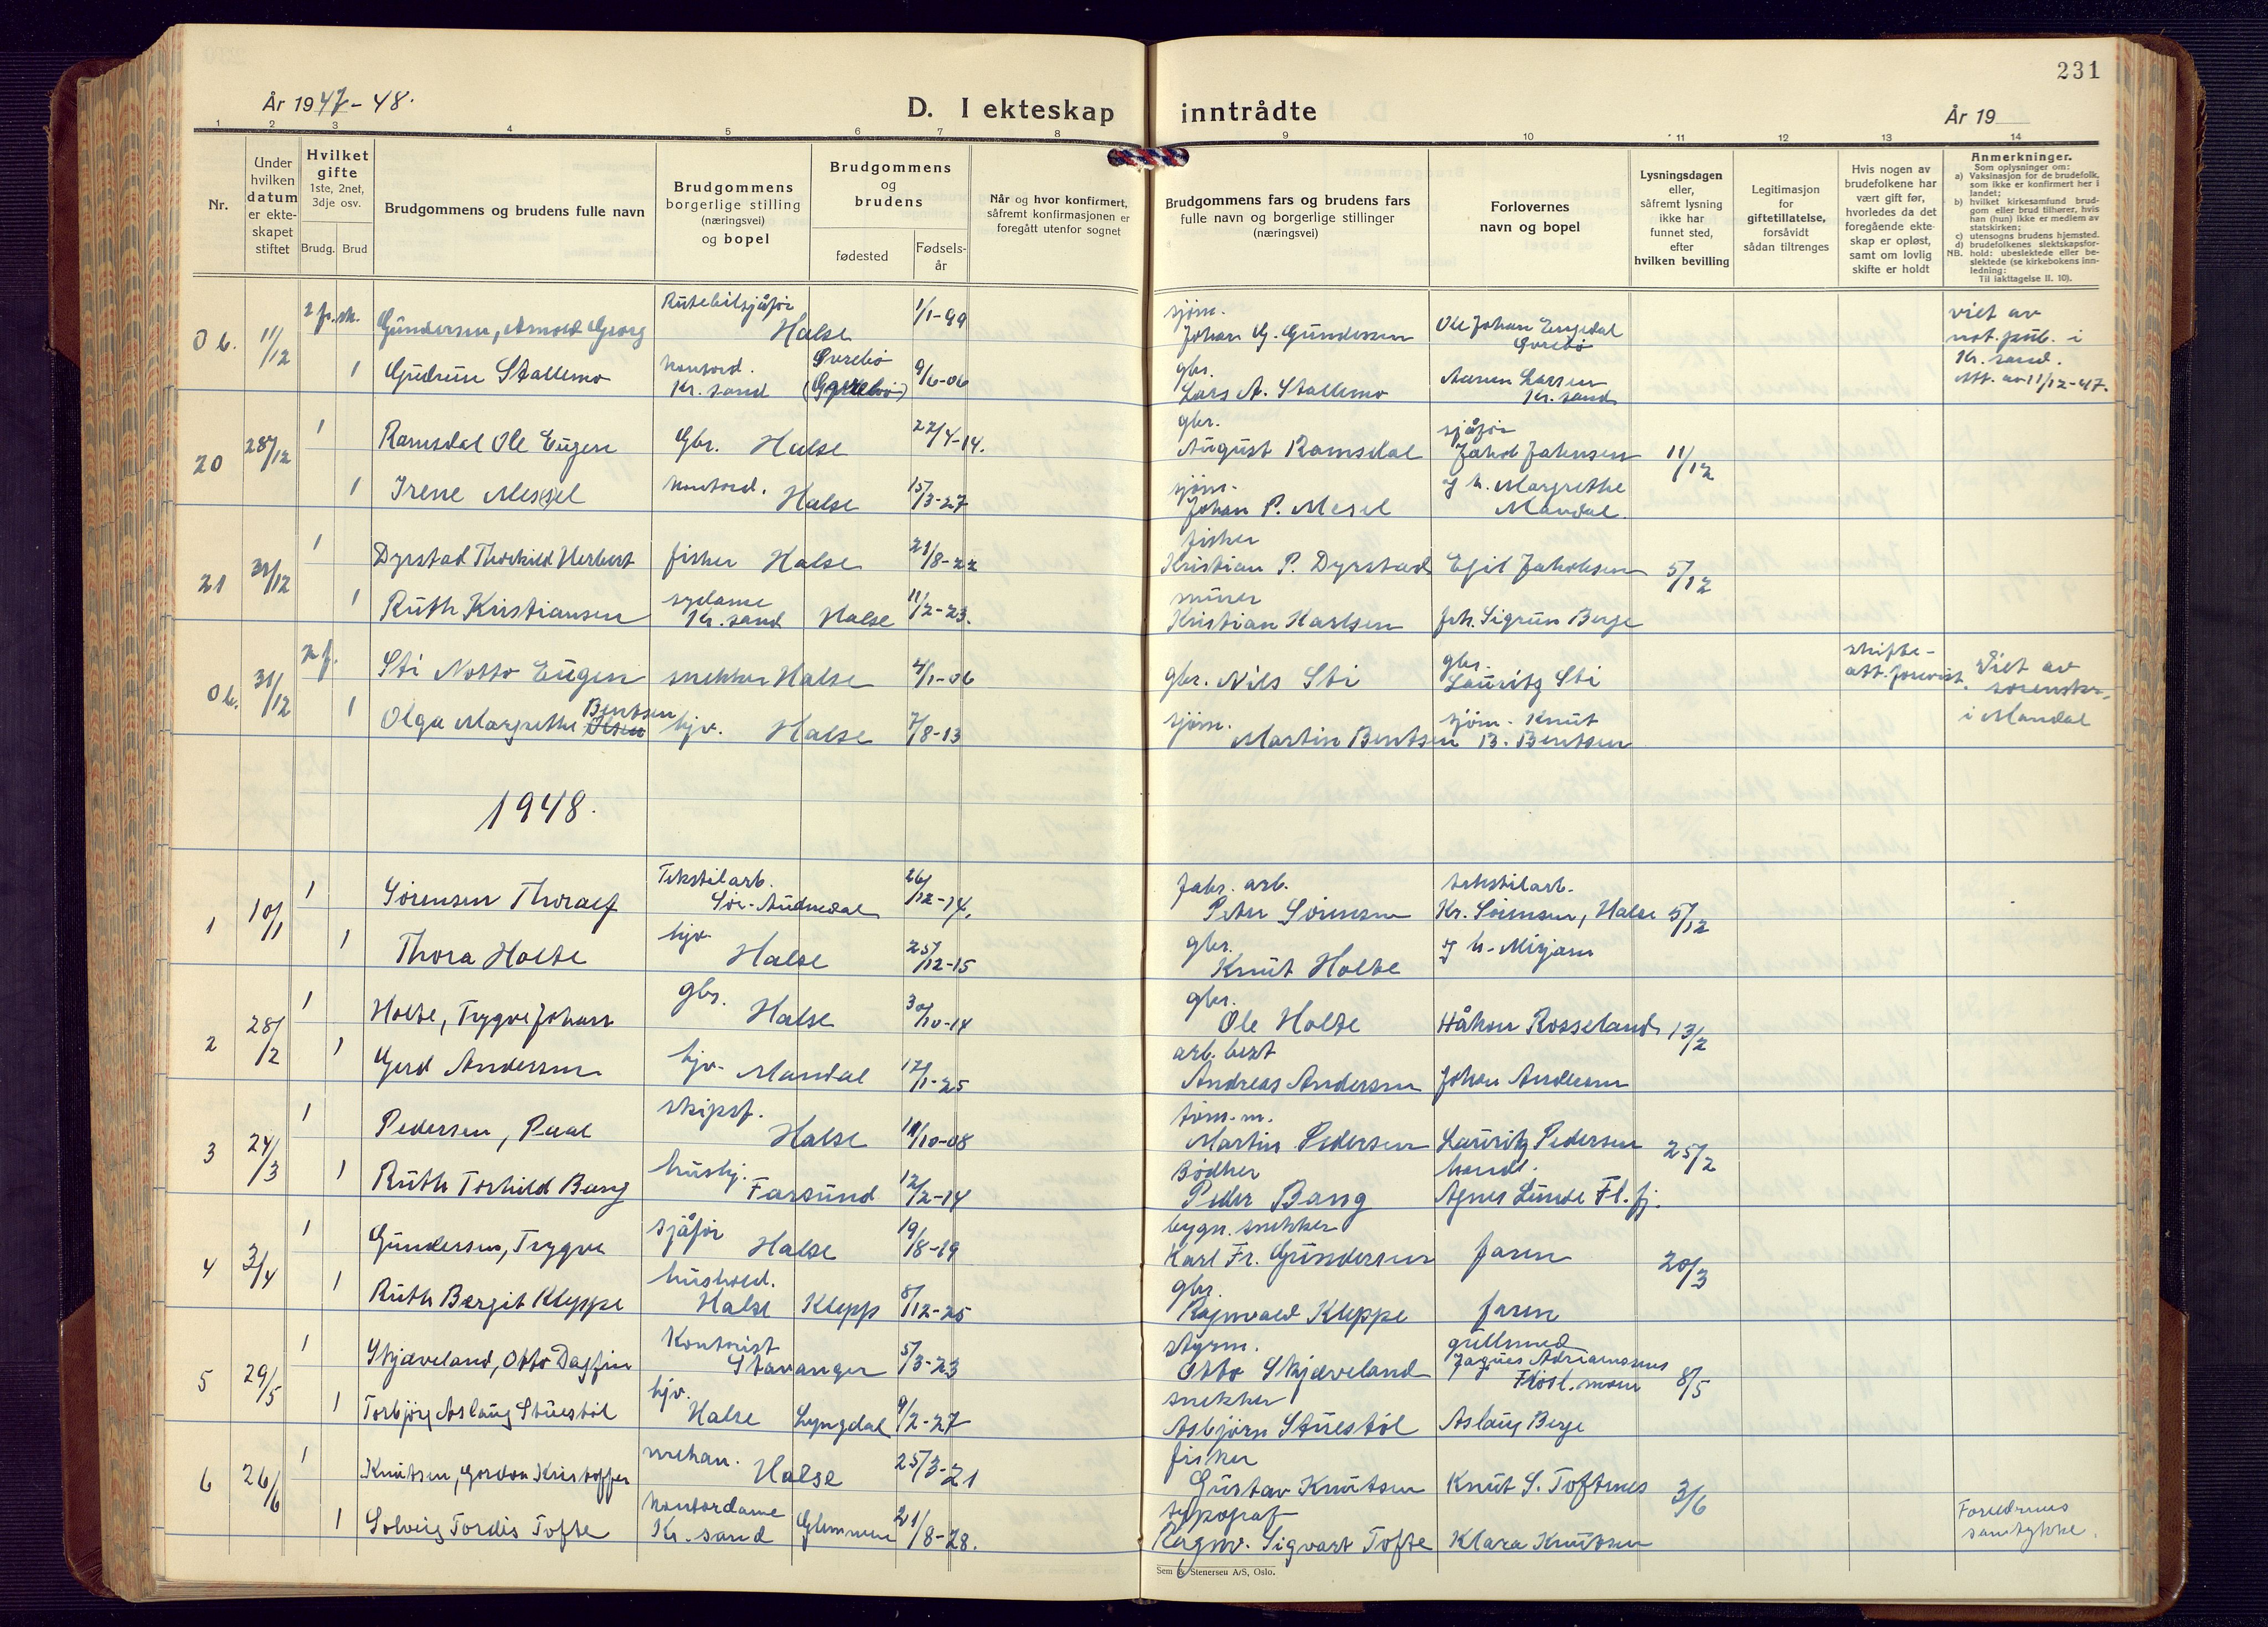 231
År 1947-48.
D. I ekteskap inntrådte
År 19
1 2 3 4 5 6 7 8 9 10 11 12 13 14
Nr.
Under hvilken datum er ekteskapet stiftet
Hvilket gifte
1ste, 2net, 3dje osv.
Brudg. Brud
Brudgommens og brudens fulle navn
Brudgommens borgerlige stilling (næringsvei) og bopel
Brudgommens og brudens
fødested
Fødselsår
Når og hvor konfirmert, såfremt konfirmasjonen er foregått utenfor sognet
Brudgommens fars og brudens fars fulle navn og borgerlige stillinger (næringsvei)
Forlovernes navn og bopel
Lysningsdagen eller, såfremt lysning ikke har funnet sted, efter hvilken bevilling
Legitimasjon for giftetillatelse, forsåvidt sådan tiltrenges
Hvis nogen av brudefolkene har vært gift før, hvorledes da det foregående ekteskap er opløst, samt om lovlig skifte er holdt
Anmerkninger.
Som oplysninger om:
a) Vaksinasjon for de brudefolk, som ikke er konfirmert her i landet;
b) hvilket kirkesamfund brudgom eller brud tilhører, hvis han (hun) ikke er medlem av statskirken;
c) utensogns brudens hjemsted.
d) brudefolkenes slektskapsforhold: ubeslektede eller beslektede (se kirkebokens innledning:
NB. Til iakttagelse II. 10).
0 b. 11/12 2 fr.sk. Gundersen, Arnold Georg Rutebilsjåfør Halse 1/1-99 sjøm. Johan G. Gundersen Ole Johan Engedal Øvrebø viet av not. pub. i Kr. sand. Att. av 11/12-47.
1 Gudrun Stallemo kontord. Kr. sand Øvrebø 9/6-06 gbr. Lars A. Stallemo Larsen Kr. sand
20 28/12 1 Ramsdal Ole Eugen Gbr. Halse 22/4-14. gbr. August Ramsdal sjåfør Jakob Jakensen 11/12
1 Irene Messel kontord. Halse 15/3-27 sjøm. Johan P. Mesel og h. Margrethe Mandal.
21 31/12 1 Dyrstad Thorkild Herbert fisker Halse 21/8-22 fisker Kristian P. Dyrstad Egil Jakobsen 5/12
1 Ruth Kristiansen sydame Kr. sand Halse 11/2-23. murer Kristian Karlsen frk. Sigrun Berge
0 b. 31/12 2 f. Sti Notto Eugen snekker Halse 4/1-06 gbr. Nils Sti gbr. Lauritz Sti skifte-att. forevist. Viet av sorenskr. i Mandal
1 Olga Margrethe Bentsen hjv. Halse 7/8-13 sjøm. Martin Bentsen sjøm. Knut B. Bentsen
1948.
1 10/1 1 Sørensen Thoralf Tekstilarb. Sør-Audnedal 26/12-14. fabr. arb. Peter Sørensen tekstilarb. Kr. Sørensen, Halse 5/12
1 Thora Holte hjv. Halse 25/12-15 gbr. Knut Holte og h. Mirjam
2 28/2 1 Holte, Trygve Johan gbr. Halse 30/10-14 gbr. Ole Holte Håkon Rosseland 13/2
1 Gerd Andersen hjv. Mandal 17/1-25 arb. best Andreas Andersen Johan Andersen
3 24/3 1 Pedersen, Paal skipsf. Halse 10/10-08 tøm. m. Martin Pedersen Lauritz Pedersen 25/2
1 Ruth Torhild Bang hushj. Farsund 12/2-14 Bødker Peder Bang handl. Agnes Lunde Fl. fj.
4 3/4 1 Gundersen, Trygve sjåfør Halse 19/8-19 bygn. snekker Karl Fr. Gundersen faren 20/3
1 Ruth Bergit Kleppe hushold. Halse Klepp 8/12-25 gbr. Ragnvald Kleppe faren
5 29/5 1 Skjæveland, Otto Dagfin Kontorist Stavanger 5/3-23 styrm. Otto Skjæveland gullsmed 8/5
1 Torbjørg Aslaug Stuestøl hjv. Halse Lyngdal 9/2-27 snekker Asbjørn Stuestøl Aslaug Berge
6 26/6 1 Knutsen, Gordon Kristoffer mekan. Halse 25/3-21 fisker Gustav Knutsen Knut S. Toftenes 3/6
1 Solveig Tordis Tofte kontordame Kr. sand Glemmen 21/8-28. typograf Ragnv. Sigvart Tofte Klara Knutsen Foreldrenes samtykke.
Sem & Stenersen A/S, Oslo.